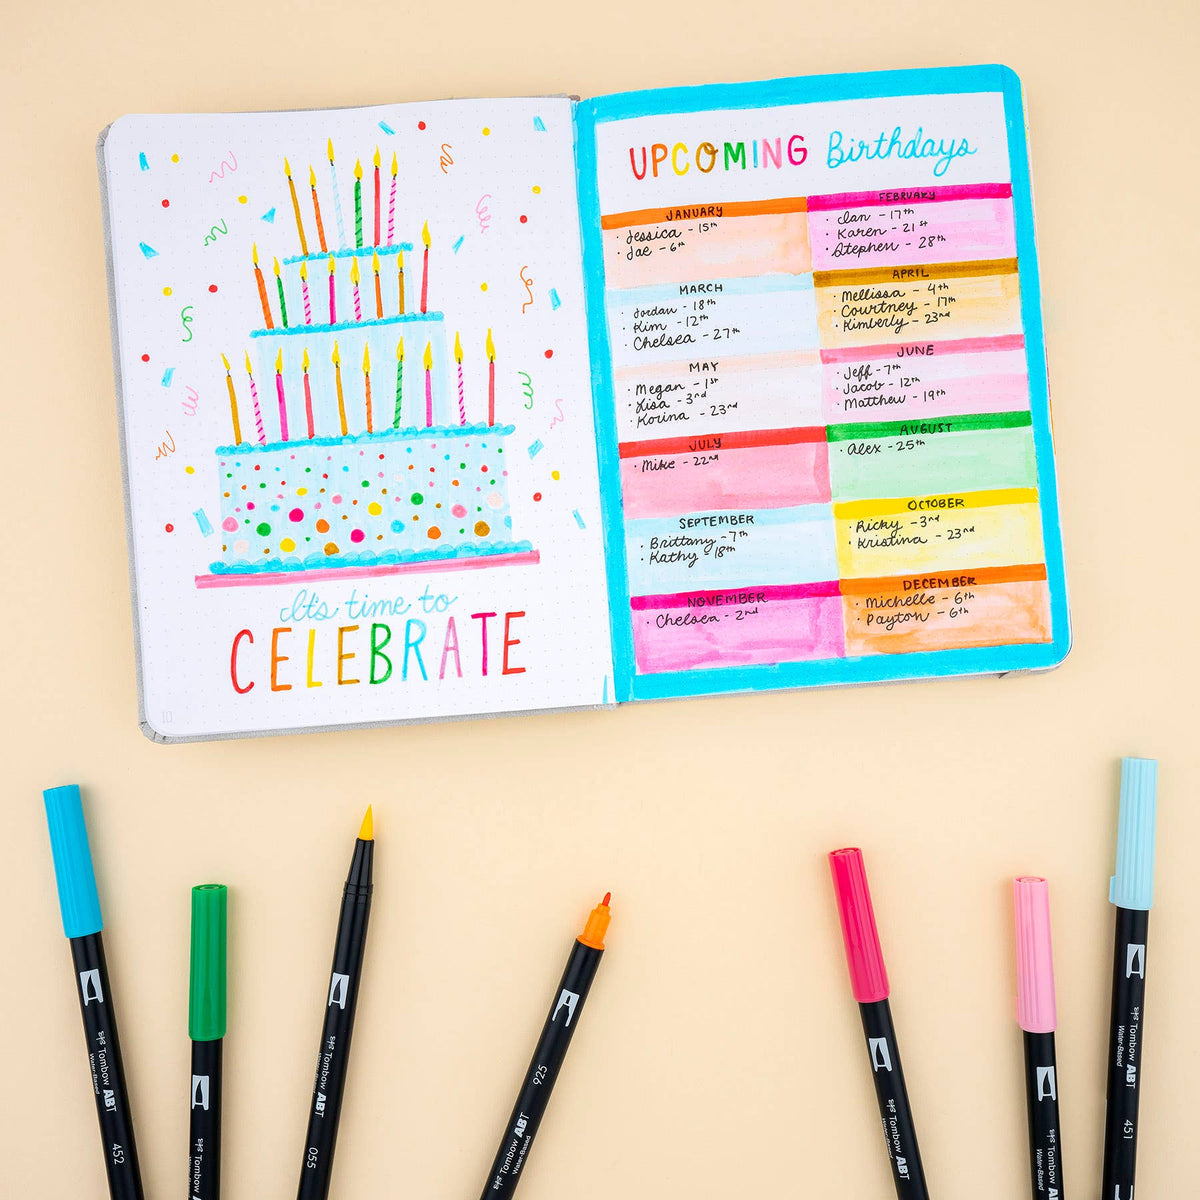 It's time to
CELEBRATE
10
UPCOMING Birthdays
JANUARY
· Jessica - 15th
· Jae - 6th
FEBRUARY
· Ian - 17th
· Karen - 21st
· Stephen - 28th
MARCH
· Jordan - 18th
· Kim - 12th
· Chelsea - 27th
APRIL
· Mellissa - 4th
· Courtney - 17th
· Kimberly - 23rd
MAY
· Megan - 1st
· Lisa - 3rd
· Korina - 23rd
JUNE
· Jeff - 7th
· Jacob - 12th
· Matthew - 19th
JULY
· Mike - 22nd
AUGUST
· Alex - 25th
SEPTEMBER
· Brittany - 7th
· Kathy - 18th
OCTOBER
· Ricky - 3rd
· Kristina - 23rd
NOVEMBER
· Chelsea - 2nd
DECEMBER
· Michelle - 6th
· Payton - 6th
Tombow ABT
Water-Based
452
Tombow ABT
Tombow ABT
Water-Based
055
925
Tombow ABT
Water-Based
Tombow ABT
Water-Based
Tombow ABT
Water-Based
Tombow ABT
Water-Based
451